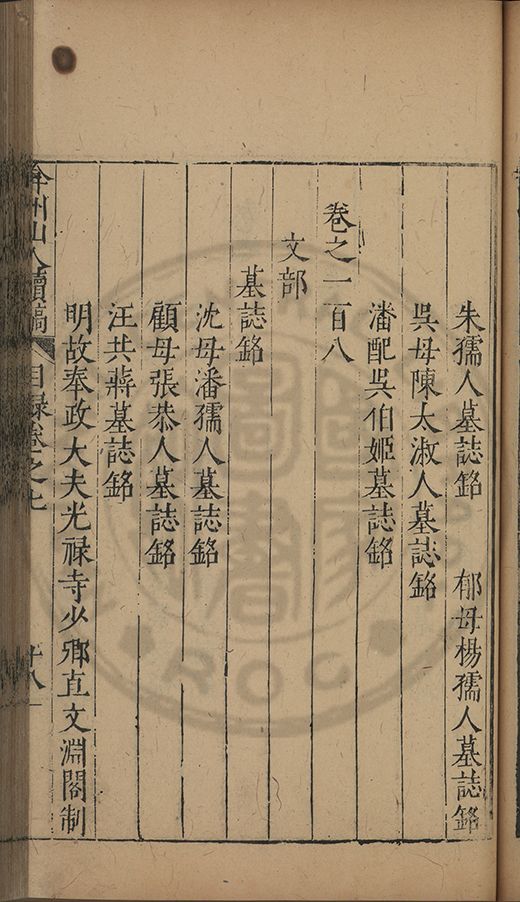 朱孺人墓誌銘　郁母楊孺人墓誌銘
吳母陳太淑人墓誌銘
潘配吳伯姬墓誌銘
卷之一百八
文部
墓誌銘
沈母潘孺人墓誌銘
顧母張恭人墓誌銘
汪共蔣墓誌銘
明故奉政大夫光祿寺少卿直文淵閣制
弇州山人續稿　目錄卷之七　十八